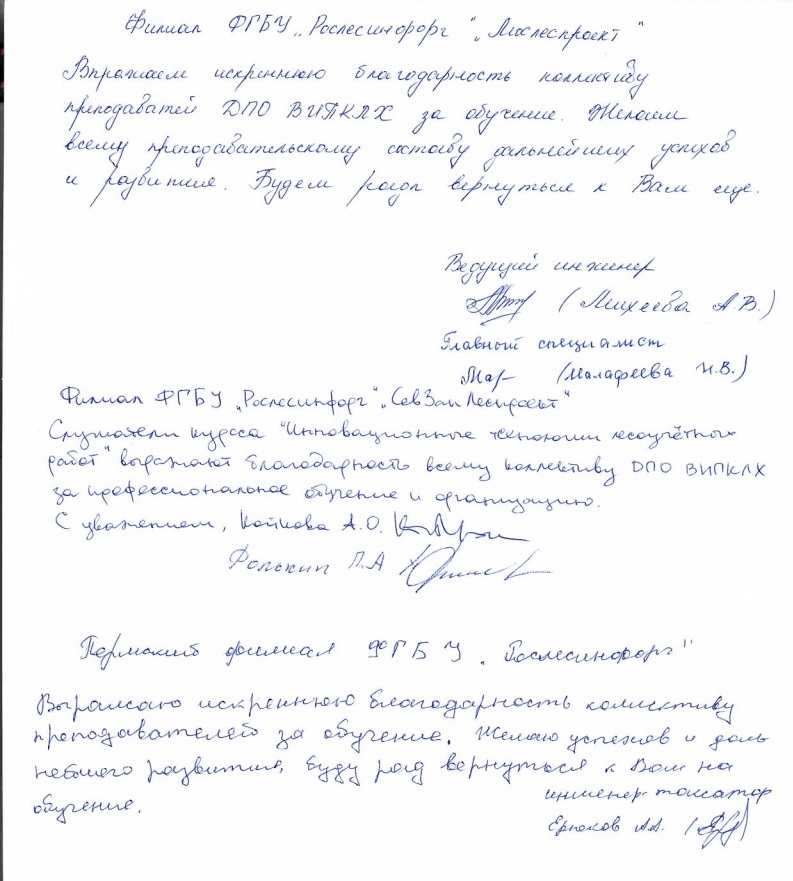 Филиал ФГБУ „Рослесинфорг" „Мослеспроект"
Выражаем искреннюю благодарность коллективу
преподаватей ДПО ВИПКЛХ за обучение. Желаем
всему преподавательскому составу дальнейших успехов
и развития. Будем рады вернуться к Вам еще.
Ведущий инженер
(Михеева А.В.)
Главный специалист
(Малафеева Н.В.)
Филиал ФГБУ „Рослесинфорг" „СевЗапЛеспроект"
Слушатели курсса "Инновационные технологии лесоучётных
работ" выражают благодарность всему коллективу ДПО ВИПКЛХ
за профессиональное обучение и организацию.
С уважением, Койкова А.О.
П.А
Пермский филиал ФГБУ „Рослесинфорг"
Выражаю искреннюю благодарность коллективу
преподавателей за обучение. Желаю успехов и даль
нейшего развития, буду рад вернуться к Вам на
обучение.
инженер-таксатор
Ерюков А.А.